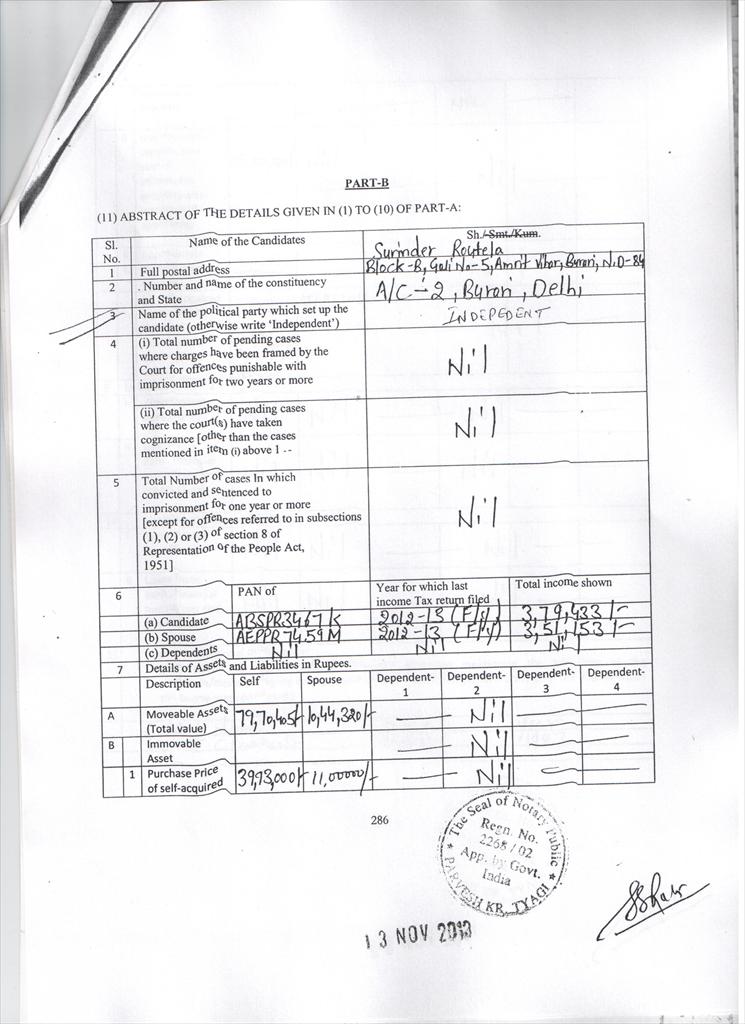 PART-B
(11) ABSTRACT OF THE DETAILS GIVEN IN (1) TO (10) OF PART-A:
Sl. No. Name of the Candidates Sh./Smt./Kum. Surinder Routela
1 Full postal address Block-B, Gali No-5, Amrit Vihar, Burari, N.D-84
2 . Number and name of the constituency and State A/C - 2, Burari, Delhi
3 Name of the political party which set up the
candidate (otherwise write 'Independent') INDEPEDENT
4 (i) Total number of pending cases
where charges have been framed by the
Court for offences punishable with
imprisonment for two years or more Nil
(ii) Total number of pending cases
where the court(s) have taken
cognizance [other than the cases
mentioned in item (i) above 1 -- Nil
5 Total Number of cases In which
convicted and sentenced to
imprisonment for one year or more
[except for offences referred to in subsections
(1), (2) or (3) of section 8 of
Representation of the People Act,
1951] Nil
6 PAN of Year for which last
income Tax return filed Total income shown
(a) Candidate ABSPR3467K 2012-13 (F/y) 3,79,433/-
(b) Spouse AEPPR7459M 2012-13 (F/y) 3,51,153/-
(c) Dependents Nil Nil Nil
7 Details of Assets and Liabilities in Rupees.
Description Self Spouse Dependent-1 Dependent-2 Dependent-3 Dependent-4
A Moveable Assets
(Total value) 79,70,405/- 10,44,320/- Nil
B Immovable
Asset Nil
1 Purchase Price
of self-acquired 39,93,000/- 11,00000/- Nil
286
The Seal of Notary Public
Regn. No.
2268/02
App. by Govt.
India
PARVESH KR. TYAGI
13 NOV 2013